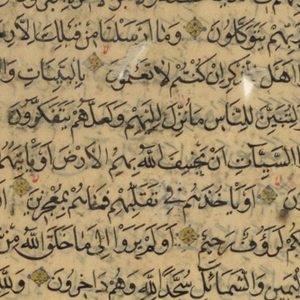 ربهم يتوكلون وما ارسلنا من قبلك الا
اهل الذكر ان كنتم لا تعلمون بالبينات وا
لتبين للناس ما نزل اليهم ولعلهم يتفكرون
السيئات ان يخسف الله بهم الارض او ياتيهم
او ياخذهم في تقلبهم فما هم بمعجزين
لرؤف رحيم اولم يروا الى ما خلق الله من
والشمائل سجدا لله وهم داخرون ولله